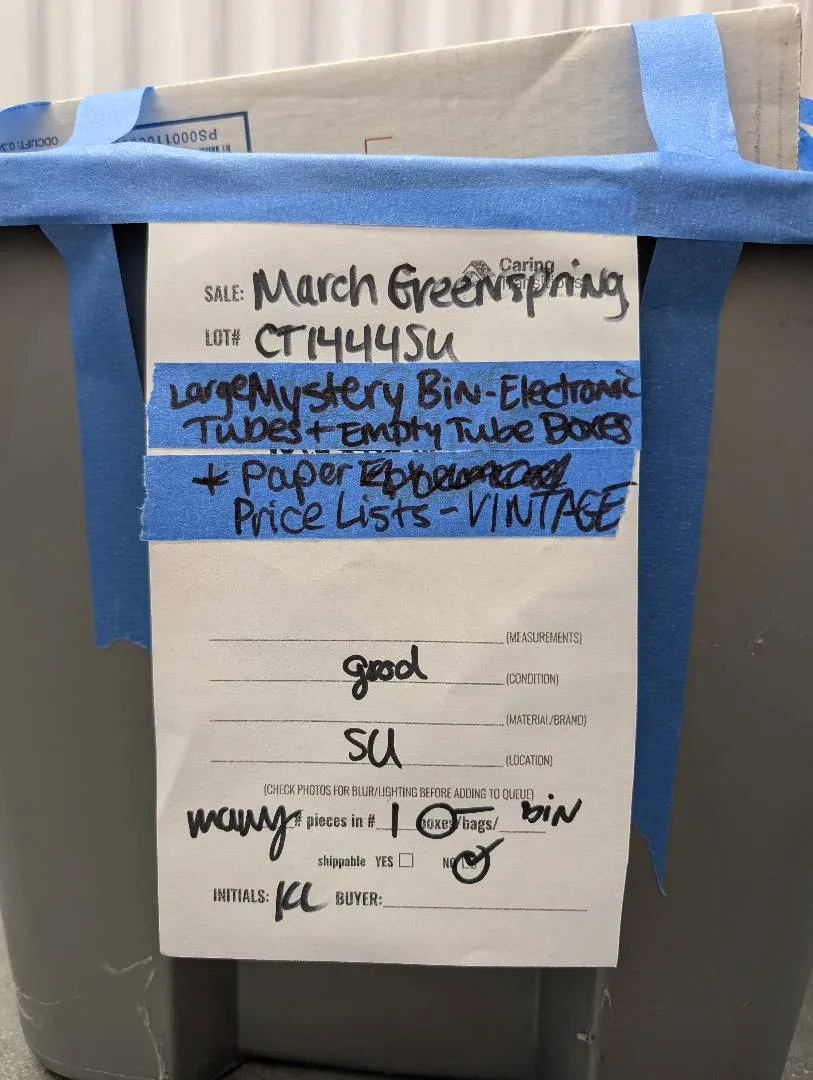 ODCUFT: 0.3
PS00011000
SALE: March Greenspring
Caring
Transitions
LOT# CT1444SU
Large Mystery Bin - Electronic
Tubes + Empty Tube Boxes
+ Paper
Price Lists - VINTAGE
(MEASUREMENTS)
good (CONDITION)
(MATERIAL/BRAND)
SU (LOCATION)
(CHECK PHOTOS FOR BLUR/LIGHTING BEFORE ADDING TO QUEUE)
many # pieces in # 1 boxes/bags/ BIN
shippable YES NO
INITIALS: KL BUYER: